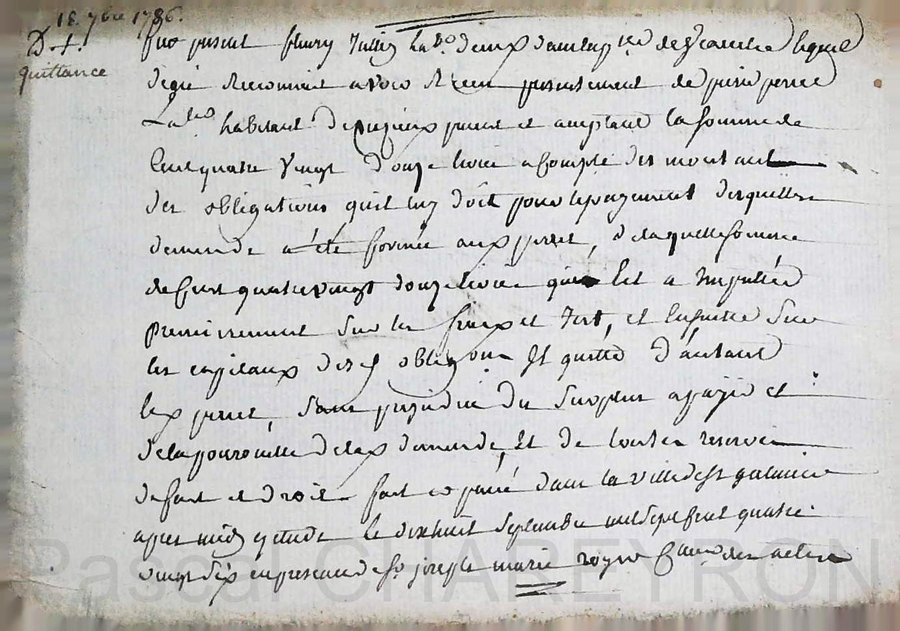 18. 7bre 1786.
D. +.
quittance
fut présent fleury Jullien lab.r de
lequel
de gré reconnait avoir Receu présentement de pierre perret
Lab.r habitant de présent et acceptant la somme de
Cent quatre Vingt douze livre a Compte des montant
des obligations qu'il luy doit pour le payement desquelles
demande a été formée aux perret, de laquelle somme
de Cent quatre vingt douze livre qu'il a Imputée
premierement Sur les fraix et Int, et Ensuitte Sur
les capitaux des d obligaon Et quitte d'autant
led perret, Sans prejudice du Surplus a payer et
de la poursuitte de lad demande, Et de touttes reserves
de fait et droit fait et passé dans la ville de St galmier
apres midy etude le dixhuit Septembre mil Sept Cent quatre
vingt Six en presence de Sr joseph marie
Pascal CHAREYRON